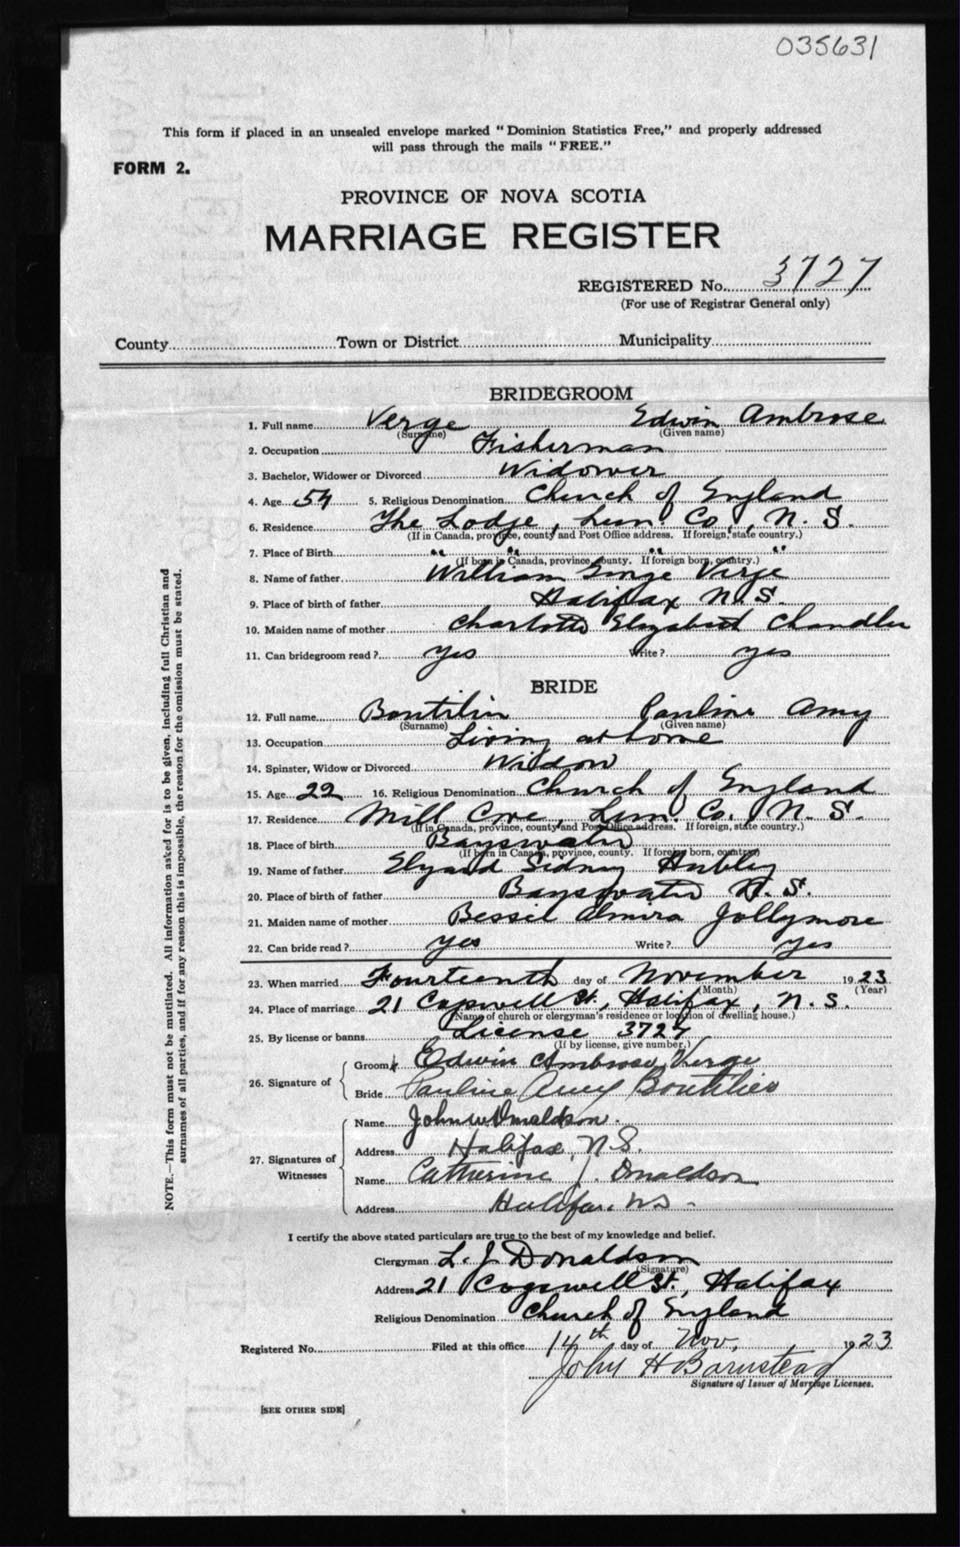 035631
This form if placed in an unsealed envelope marked "Dominion Statistics Free," and properly addressed
will pass through the mails "FREE."
FORM 2.
PROVINCE OF NOVA SCOTIA
MARRIAGE REGISTER
REGISTERED No. 3727
(For use of Registrar General only)
County Town or District Municipality
BRIDEGROOM
1. Full name Verge Edwin Ambrose
(Surname) (Given name)
2. Occupation Fisherman
3. Bachelor, Widower or Divorced Widower
4. Age 54 5. Religious Denomination Church of England
6. Residence The Lodge, Lun. Co., N. S.
(If in Canada, province, county and Post Office address. If foreign, state country.)
7. Place of Birth " " " "
(If born in Canada, province county. If foreign born, country.)
8. Name of father William George Verge
9. Place of birth of father Halifax N.S.
10. Maiden name of mother Charlotte Elizabeth Chandler
11. Can bridegroom read? yes Write? yes
BRIDE
12. Full name Boutilier Pauline Amy
(Surname) (Given name)
13. Occupation Living at home
14. Spinster, Widow or Divorced Widow
15. Age 22 16. Religious Denomination Church of England
17. Residence Mill Cove, Lun. Co. N. S.
(If in Canada, province, county and Post Office address. If foreign, state country.)
18. Place of birth Bayswater
(If born in Canada, province, county. If foreign born, country)
19. Name of father Sidney Hubley
20. Place of birth of father Bayswater N. S.
21. Maiden name of mother Bessel Almira Jollymore
22. Can bride read? yes Write? yes
23. When married Fourteenth day of November 1923
(Month) (Year)
24. Place of marriage 21 Cogswell St., Halifax, N. S.
(Name of church or clergyman's residence or location of dwelling house.)
25. By license or banns License 3727
(If by license, give number.)
26. Signature of Groom Edwin Ambrose Verge
Bride Pauline Amy Boutilier
27. Signatures of Witnesses Name John W Donaldson
Address Halifax, N.S.
Name Catherine J. Donaldson
Address Halifax. NS.
I certify the above stated particulars are true to the best of my knowledge and belief.
Clergyman L. J. Donaldson
(Signature)
Address 21 Cogswell St., Halifax
Religious Denomination Church of England
Registered No. Filed at this office 14th day of Nov. 1923
John H Barnstead
Signature of Issuer of Marriage Licenses.
[SEE OTHER SIDE]
NOTE.—This form must not be mutilated. All information asked for is to be given, including full Christian and
surnames of all parties, and if for any reason this is impossible, the reason for the omission must be stated.